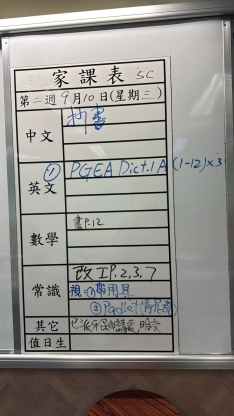 家課表 5C
第二週 9月10日(星期三)
中文
抄書
英文
① PGEA Dict.1A (1-12)×3
數學
書P.12
常識
改 IP.2,3,7
視:①常用具
其它
值日生